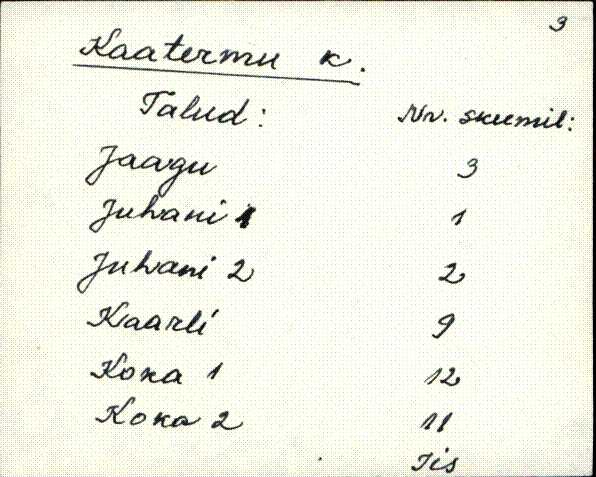 3
Kaatermu k.
Talud: Nr. skeemil:
Jaagu 3
Juhani 1 1
Juhani 2 2
Kaarli 9
Koka 1 12
Koka 2 11
Iis